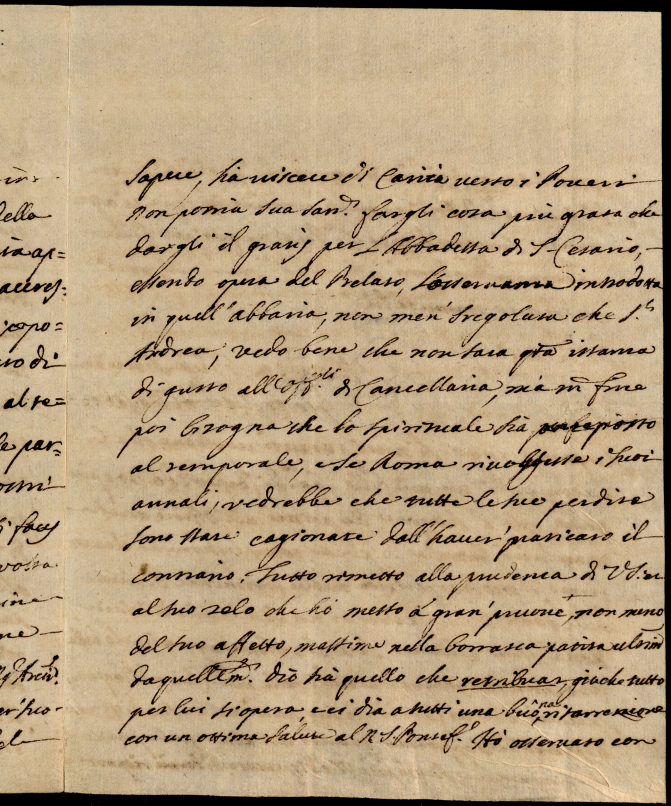 in=
della
ia ap=
accres=
icopo=
so di
al te=
le par=
ostri
i facy
vostra
ine
ne
Arch.
er suo
del
Sapere, hà viscere di Carità verso i Poveri
non potria Sua San.tà fargli cosa più grata che
dargli il gratis per l'Abbadessa di S. Cesario,
essendo opera del Prelato, l'osservanza introdotta
in quell'abbazia, non men' sregolata che S.
Andrea, vedo bene che non sarà istanza
di gusto all' Off.li di Cancellaria, mà in fine
poi bisogna che lo spirituale sia preferito
al temporale, e se Roma rivolgesse i suoi
annali, vedrebbe che tutte le sue perdite
sono state cagionate dall'haver' praticato il
contrario. Tutto rimetto alla prudenza di V.S.
al suo zelo che hò messo à gran' pruove, non meno
del suo affetto, massime nella borrasca patita
da quell'Em. Dio sia quello che retribuat, giache tutto
per lui s'opera e ci dia a tutti una buona risurrezione
con un ottima salute al N.S. Pontef.e Hò osservato con